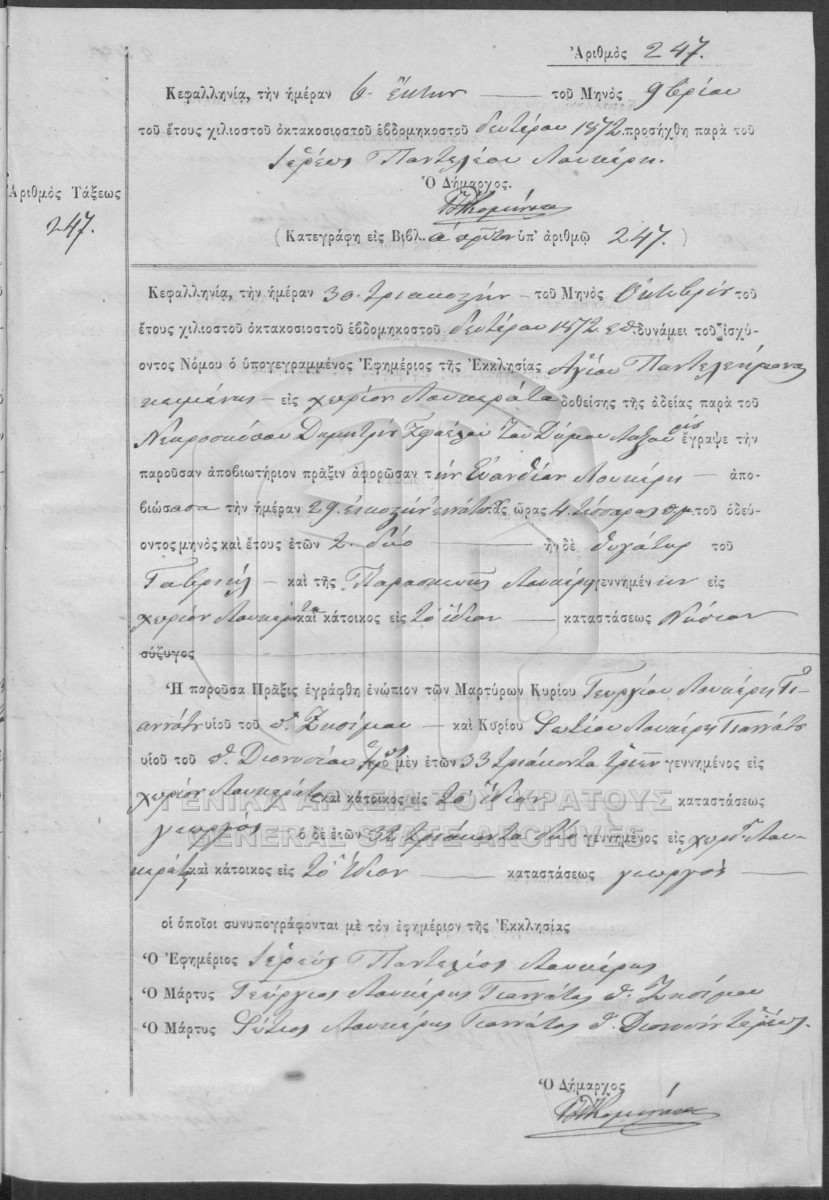 Ἀριθμὸς 247.
Κεφαλληνίᾳ, τὴν ἡμέραν 6. ἕκτην τοῦ Μηνὸς 9βρίου
τοῦ ἔτους χιλιοστοῦ ὀκτακοσιοστοῦ ἑβδομηκοστοῦ δευτέρου 1872 προσήχθη παρὰ τοῦ
Ἱερέως Παντελέου Λουκέρη.
Ὁ Δήμαρχος.
Ἀριθμὸς Τάξεως
247.
( Κατεγράφη εἰς Βιβλ. ά πρῶτον ὑπ' ἀριθμῷ 247. )
Κεφαλληνίᾳ, τὴν ἡμέραν 30 τριακοστήν τοῦ Μηνὸς Ὀκτωβρίου τοῦ
ἔτους χιλιοστοῦ ὀκτακοσιοστοῦ ἑβδομηκοστοῦ δευτέρου 1872 δυνάμει τοῦ ἰσχύ-
οντος Νόμου ὁ ὑπογεγραμμένος Ἐφημέριος τῆς Ἐκκλησίας Ἁγίου Παντελεήμονα
κειμένης εἰς χωρίον Λουκεράτα δοθείσης τῆς ἀδείας παρὰ τοῦ
Νεκροσκόπου Δημητρίου τοῦ Δήμου ἔγραψε τὴν
παροῦσαν ἀποβιωτήριον πρᾶξιν ἀφορῶσαν τὴν Εὐανθίαν Λουκέρη ἀπο-
βιώσασα τὴν ἡμέραν 29 εἰκοστήν ἐνάτην τὰς ὥρας 4 τέσσαρας πμ. τοῦ ὁδεύ-
οντος μηνὸς καὶ ἔτους ἐτῶν 2. δύο ἦν δὲ θυγάτηρ τοῦ
Γαβριήλ καὶ τῆς Παρασκευῆς Λουκέρη γεννημένην εἰς
χωρίον Λουκεράτα καὶ κάτοικος εἰς τὸ ἴδιον καταστάσεως Νήπιον
σύζυγος
Ἡ παροῦσα Πρᾶξις ἐγράφθη ἐνώπιον τῶν Μαρτύρων Κυρίου Γεωργίου Λουκέρη Γι-
αννάτου υἱοῦ τοῦ π. Ζησίμου καὶ Κυρίου Φωτίου Λουκέρη Γιαννάτου
υἱοῦ τοῦ π. Διονυσίου ὁ μὲν ἐτῶν 33 τριάκοντα τριῶν γεννημένος εἰς
χωρίον Λουκεράτα καὶ κάτοικος εἰς τὸ ἴδιον καταστάσεως
γεωργός ὁ δὲ ἐτῶν 32 τριάκοντα δύο γεννημένος εἰς χωρίον Λου-
κεράτα καὶ κάτοικος εἰς τὸ ἴδιον καταστάσεως γεωργός
οἱ ὁποῖοι συνυπογράφονται μὲ τὸν ἐφημέριον τῆς Ἐκκλησίας
Ὁ Ἐφημέριος Ἱερεύς Παντελέος Λουκέρης
Ὁ Μάρτυς Γεώργιος Λουκέρης Γιαννάτος π. Ζησίμου
Ὁ Μάρτυς Φώτιος Λουκέρης Γιαννάτος π. Διονυσίου Ἱερέως.
Ὁ Δήμαρχος
ΓΕΝΙΚΑ ΑΡΧΕΙΑ ΤΟΥ ΚΡΑΤΟΥΣ
GENERAL STATE ARCHIVES